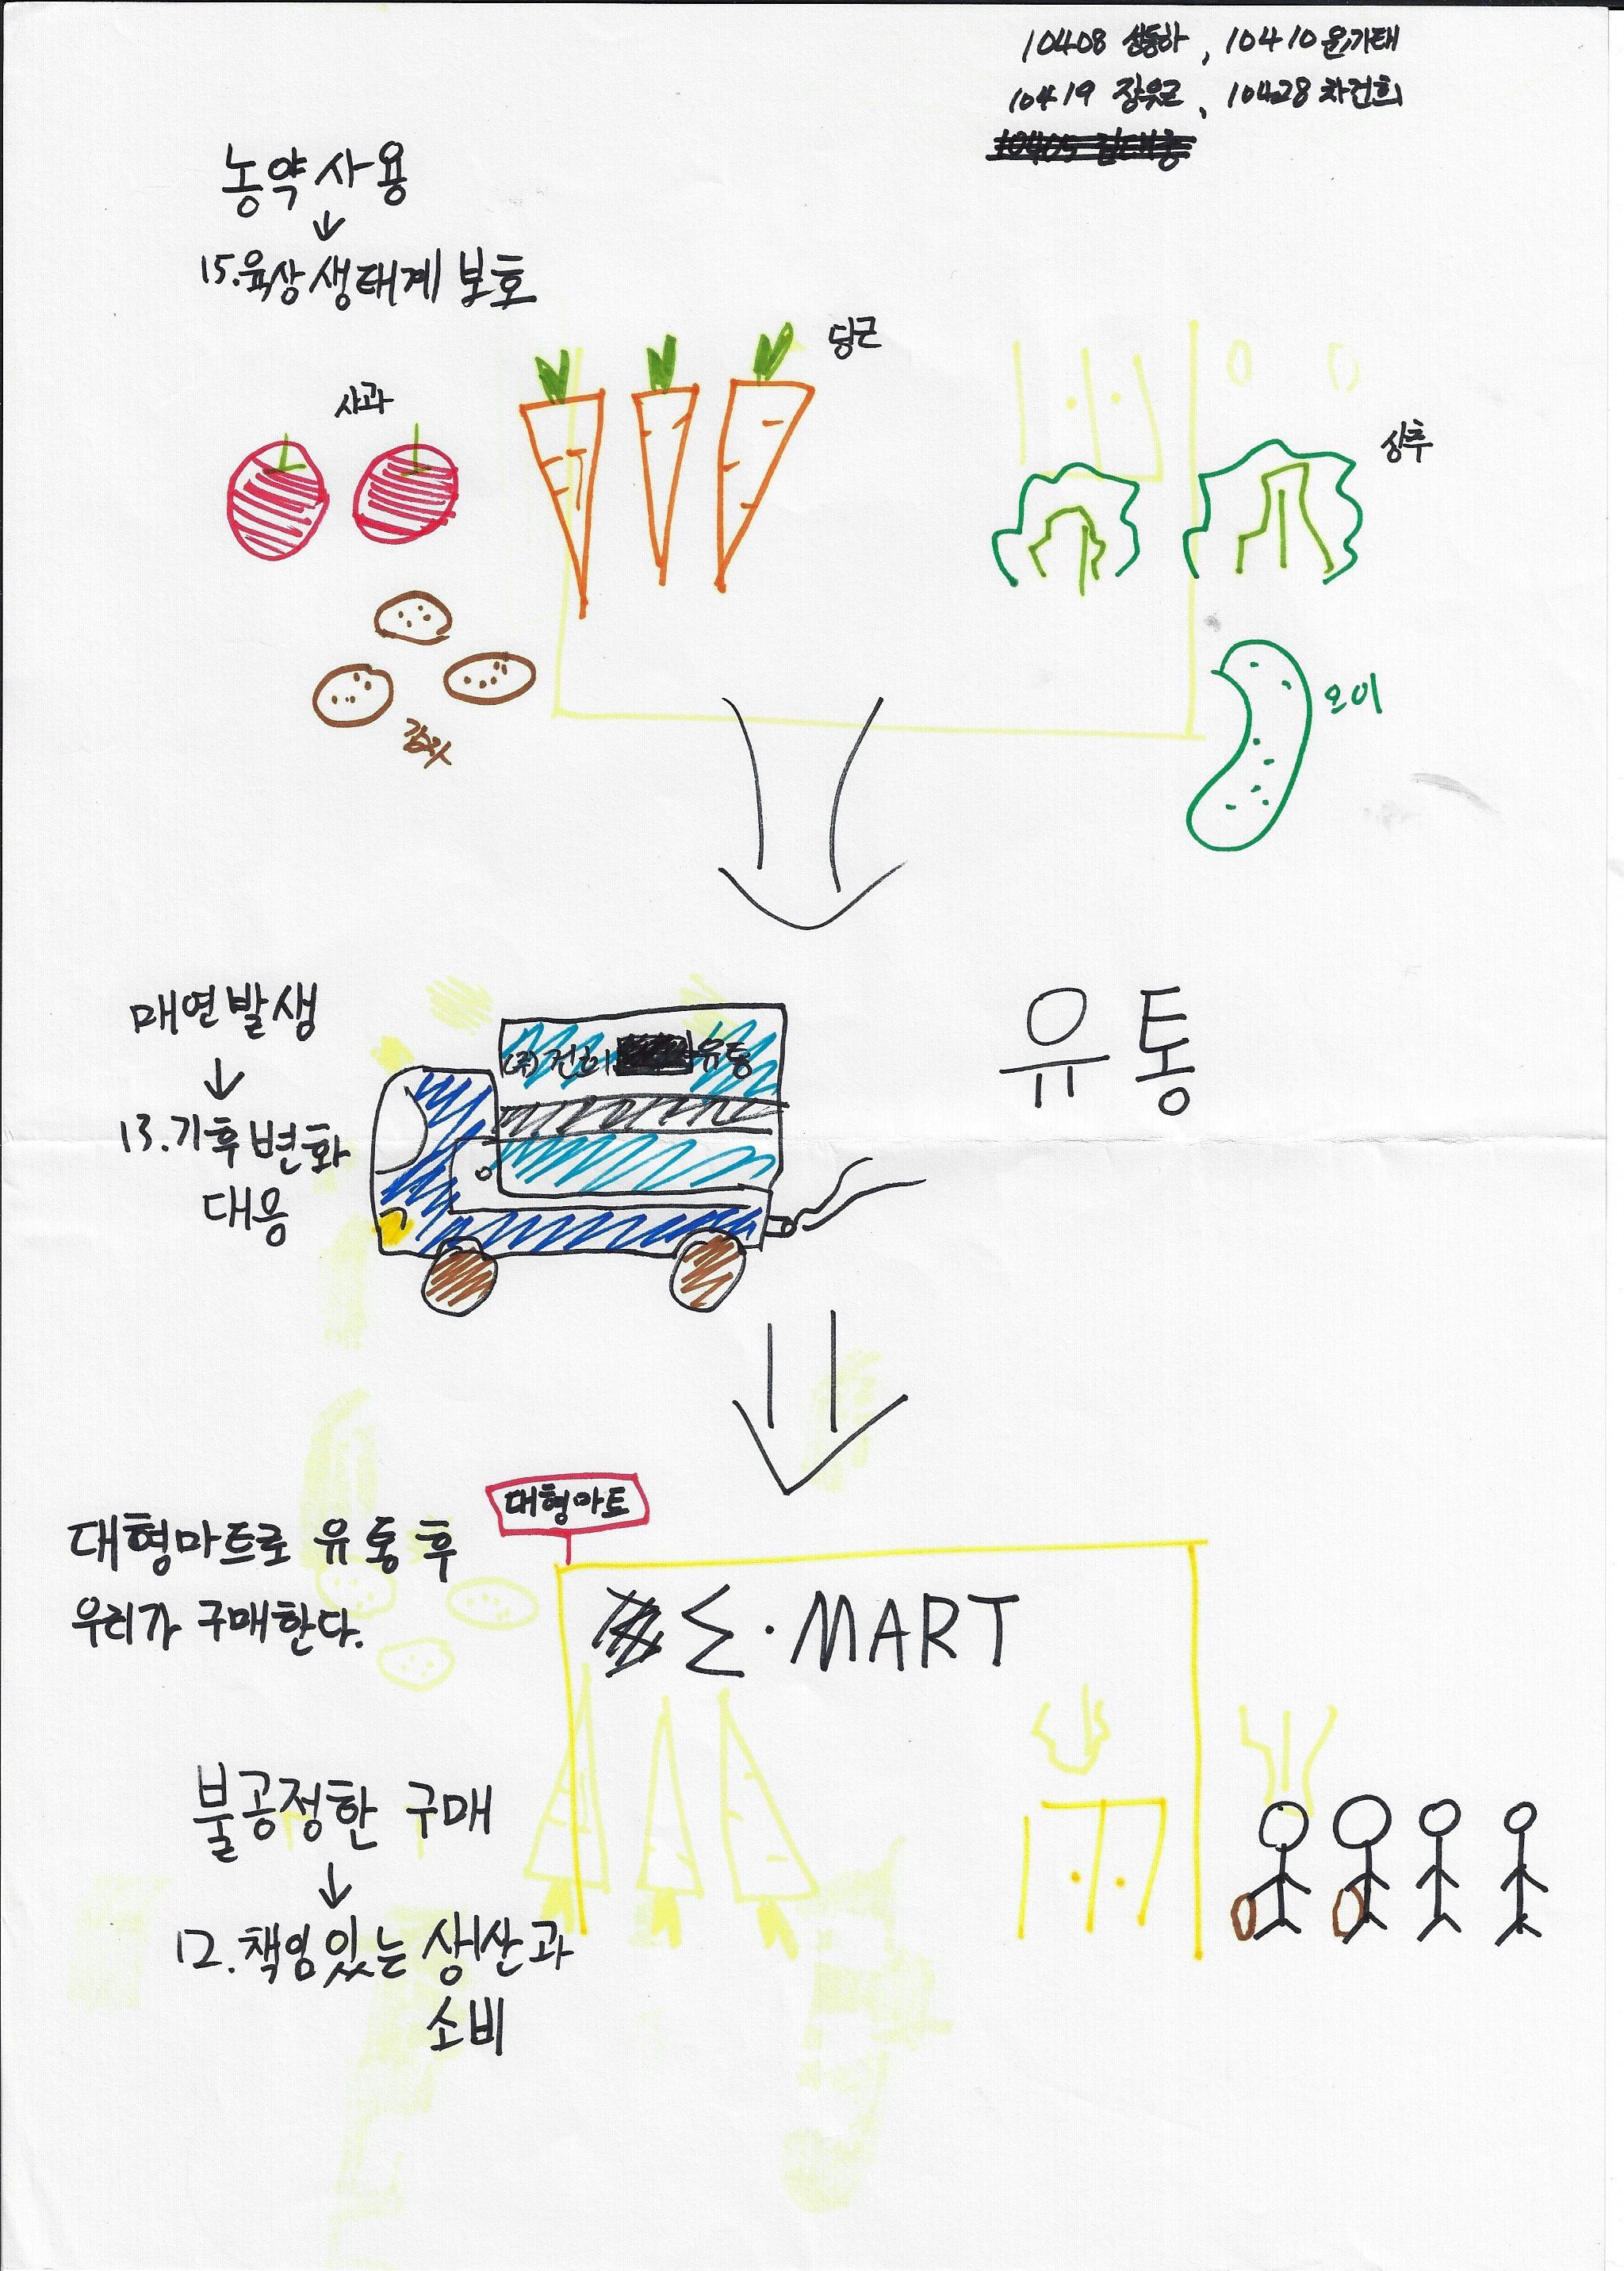 10408 성동하, 10410 윤기태
10419 장유근, 10428 차건희
농약사용
↓
15.육상생태계 보호
당근
사과
상추
감자
오이
매연발생
↓
13.기후변화
대응
(주)건희 유통
유통
대형마트
대형마트로 유통 후
우리가 구매한다.
Σ·MART
불공정한 구매
↓
12.책임있는 생산과
소비